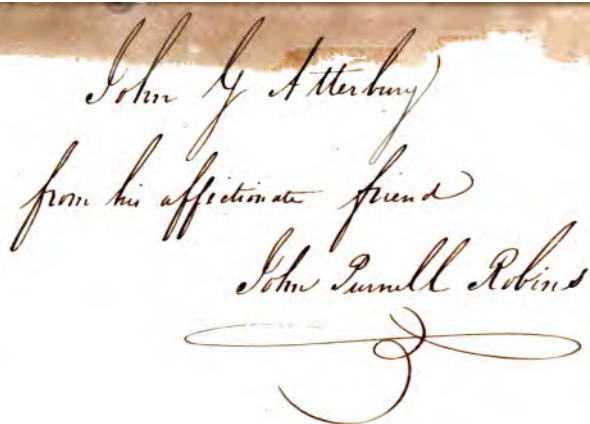 John G Atterbury
from his affectionate friend
John Purnell Robins